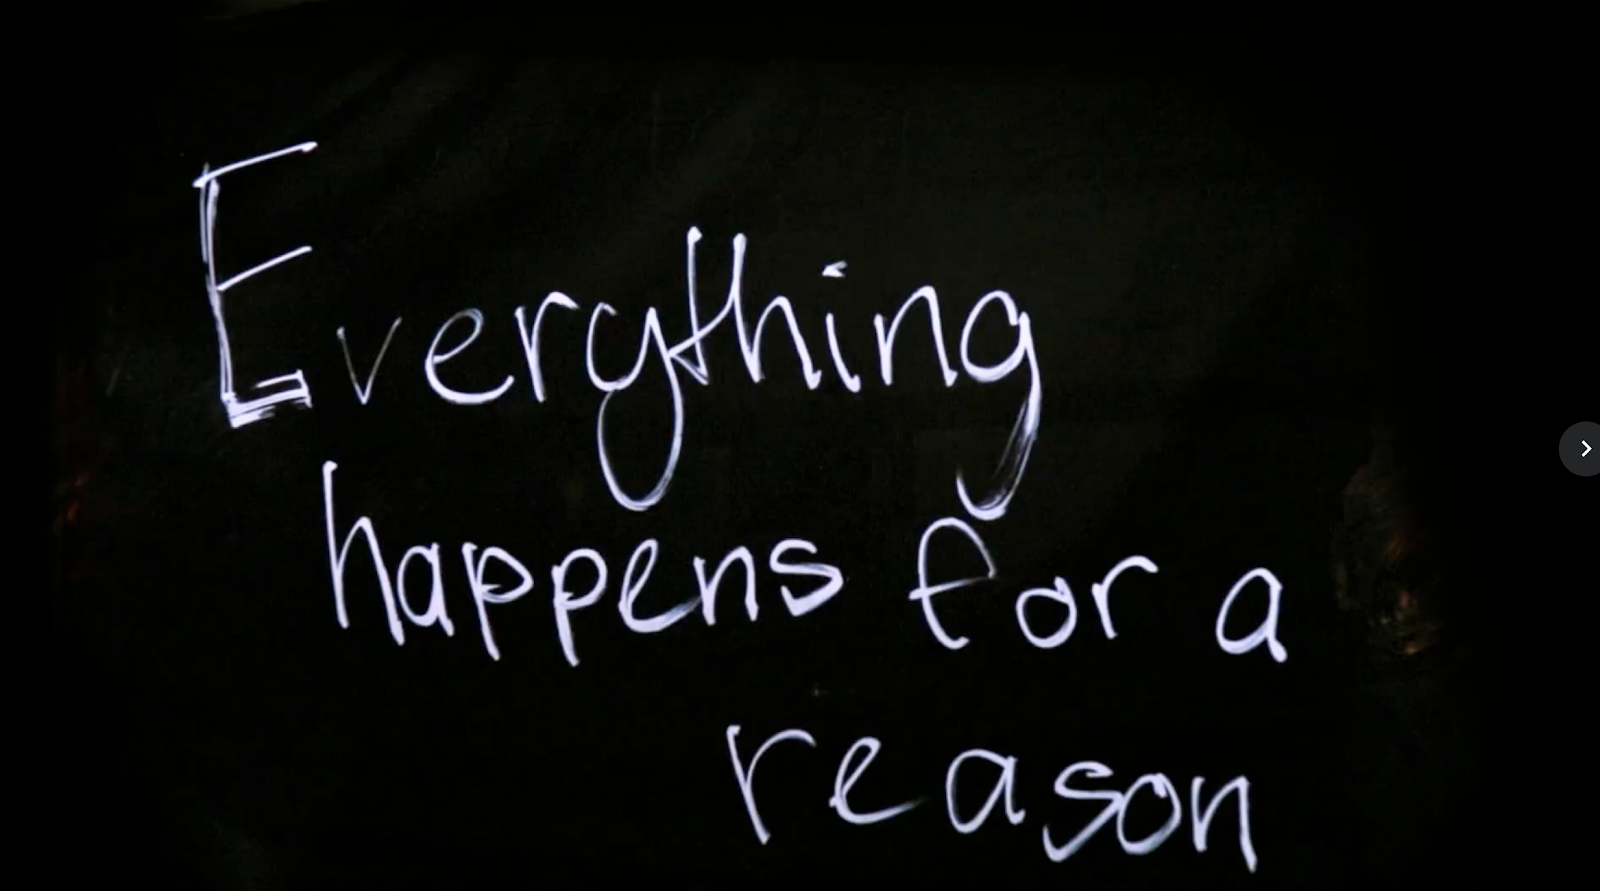 Everything
happens for a
reason